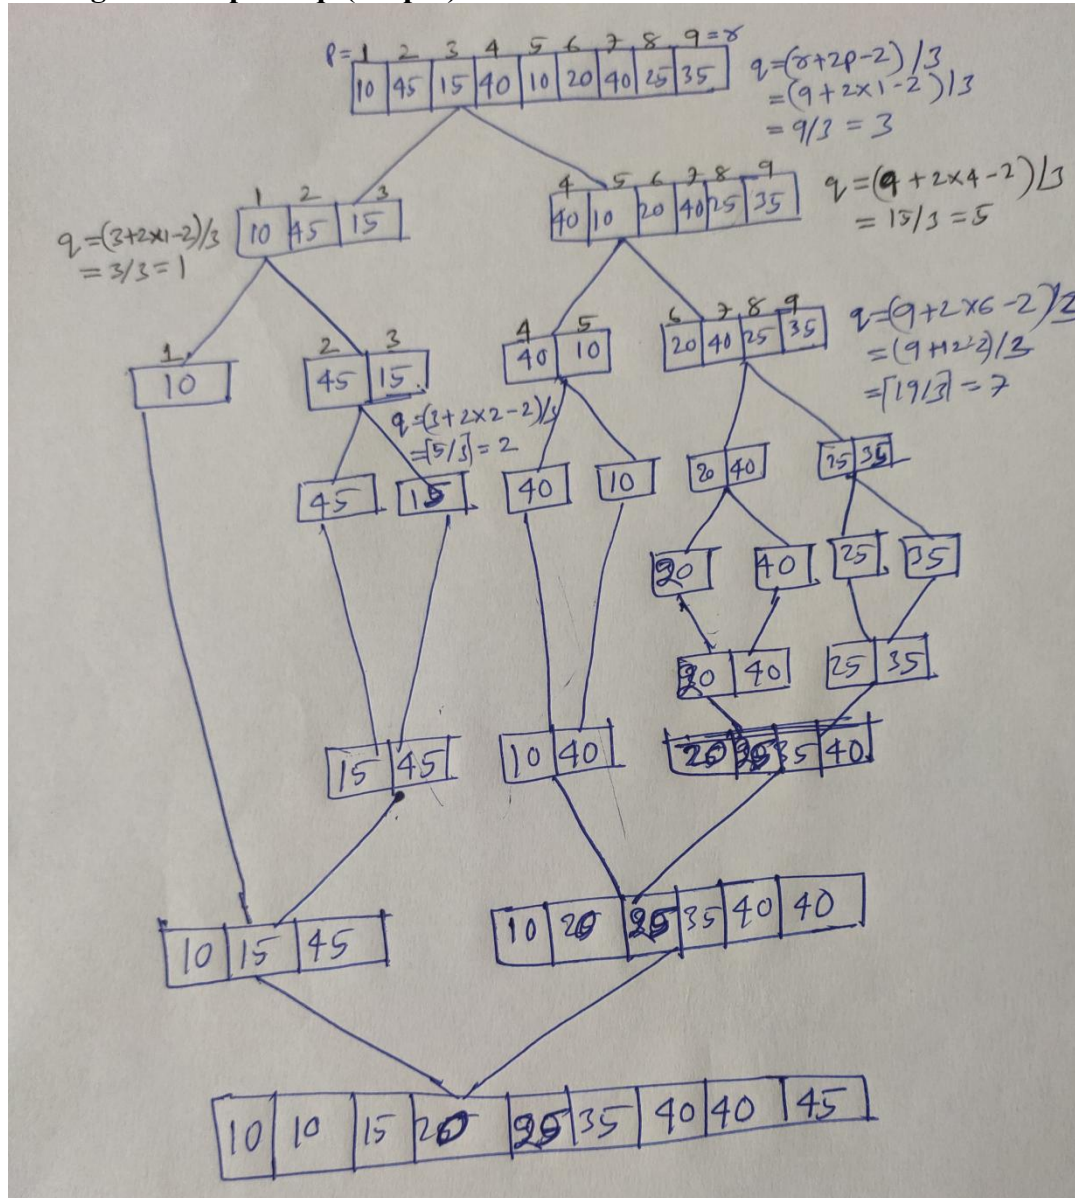 P=1 2 3 4 5 6 7 8 9=r
10 45 15 40 10 20 40 25 35
q=(r+2p-2)/3
=(9+2×1-2)/3
=9/3=3
1 2 3
10 45 15
q=(3+2×1-2)/3
=3/3=1
4 5 6 7 8 9
40 10 20 40 25 35
q=(9+2×4-2)/3
=15/3=5
1
10
2 3
45 15
q=(3+2×2-2)/3
=⌈5/3⌉=2
4 5
40 10
6 7 8 9
20 40 25 35
q=(9+2×6-2)/3
=(9+12-2)/3
=⌈19/3⌉=7
45 15 40 10
20 40 25 35
20 40 25 35
20 40 25 35
15 45 10 40
20 25 35 40
10 15 45
10 20 25 35 40 40
10 10 15 20 25 35 40 40 45